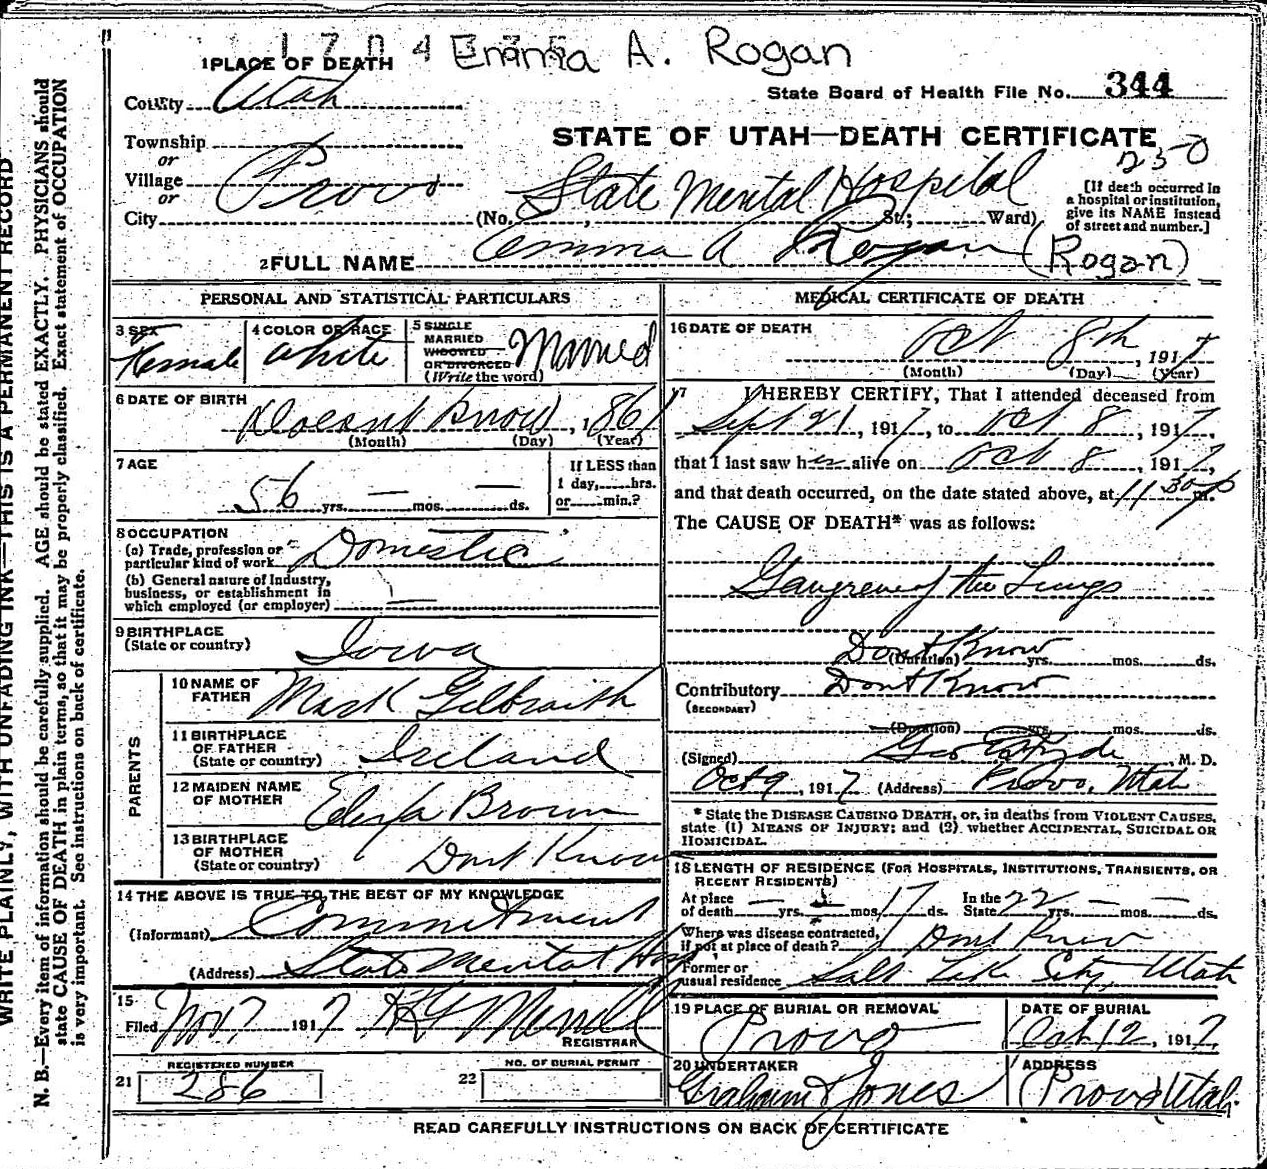 1 7 0 4 3 7 5
Emma A. Rogan
1 PLACE OF DEATH
County Utah
State Board of Health File No. 344
STATE OF UTAH—DEATH CERTIFICATE
250
Township
or
Village Provo
or
City
(No. State Mental Hospital St.; Ward)
[If death occurred in
a hospital or institution,
give its NAME instead
of street and number.]
2 FULL NAME Emma A Rogan (Rogan)
PERSONAL AND STATISTICAL PARTICULARS
3 SEX
Female
4 COLOR OR RACE
White
5 SINGLE
MARRIED
WIDOWED
OR DIVORCED
(Write the word)
Married
6 DATE OF BIRTH
Doesnt Know, 1861
(Month) (Day) (Year)
7 AGE
56 yrs. — mos. — ds.
If LESS than
1 day, hrs.
or min.?
8 OCCUPATION
(a) Trade, profession or
particular kind of work Domestic
(b) General nature of Industry,
business, or establishment in
which employed (or employer) —
9 BIRTHPLACE
(State or country) Iowa
PARENTS
10 NAME OF
FATHER Mark Gilbraith
11 BIRTHPLACE
OF FATHER
(State or country) Ireland
12 MAIDEN NAME
OF MOTHER Brown
13 BIRTHPLACE
OF MOTHER
(State or country) Dont Know
14 THE ABOVE IS TRUE TO THE BEST OF MY KNOWLEDGE
(Informant) Commitment
(Address) State Mental Hosp
15
Filed Nov 7 1917 Merrill
REGISTRAR
REGISTERED NUMBER
21 286
NO. OF BURIAL PERMIT
22
MEDICAL CERTIFICATE OF DEATH
16 DATE OF DEATH
Oct 8th, 1917
(Month) (Day) (Year)
17 I HEREBY CERTIFY, That I attended deceased from
Sept 21, 1917, to Oct 8, 1917,
that I last saw her alive on Oct 8, 1917,
and that death occurred, on the date stated above, at 11 30 p m.
The CAUSE OF DEATH* was as follows:
Gangrene of the Lungs
Dont Know
(Duration) yrs. mos. ds.
Contributory Dont Know
(SECONDARY)
(Duration) yrs. mos. ds.
(Signed) Geo E Hyde, M. D.
Oct 9, 1917 (Address) Provo, Utah
* State the DISEASE CAUSING DEATH, or, in deaths from VIOLENT CAUSES,
state (1) MEANS OF INJURY; and (2) whether ACCIDENTAL, SUICIDAL OR
HOMICIDAL.
18 LENGTH OF RESIDENCE (FOR HOSPITALS, INSTITUTIONS, TRANSIENTS, OR
RECENT RESIDENTS)
At place
of death — yrs. — mos. 17 ds.
In the
State 22 yrs. — mos. — ds.
Where was disease contracted,
if not at place of death? Dont Know
Former or
usual residence Salt Lake City, Utah
19 PLACE OF BURIAL OR REMOVAL
Provo
DATE OF BURIAL
Oct 12, 1917
20 UNDERTAKER
Graham & Jones
ADDRESS
Provo Utah.
READ CAREFULLY INSTRUCTIONS ON BACK OF CERTIFICATE
WRITE PLAINLY, WITH UNFADING INK—THIS IS A PERMANENT RECORD
N. B.—Every item of information should be carefully supplied. AGE should be stated EXACTLY. PHYSICIANS should
state CAUSE OF DEATH in plain terms, so that it may be properly classified. Exact statement of OCCUPATION
is very important. See instructions on back of certificate.